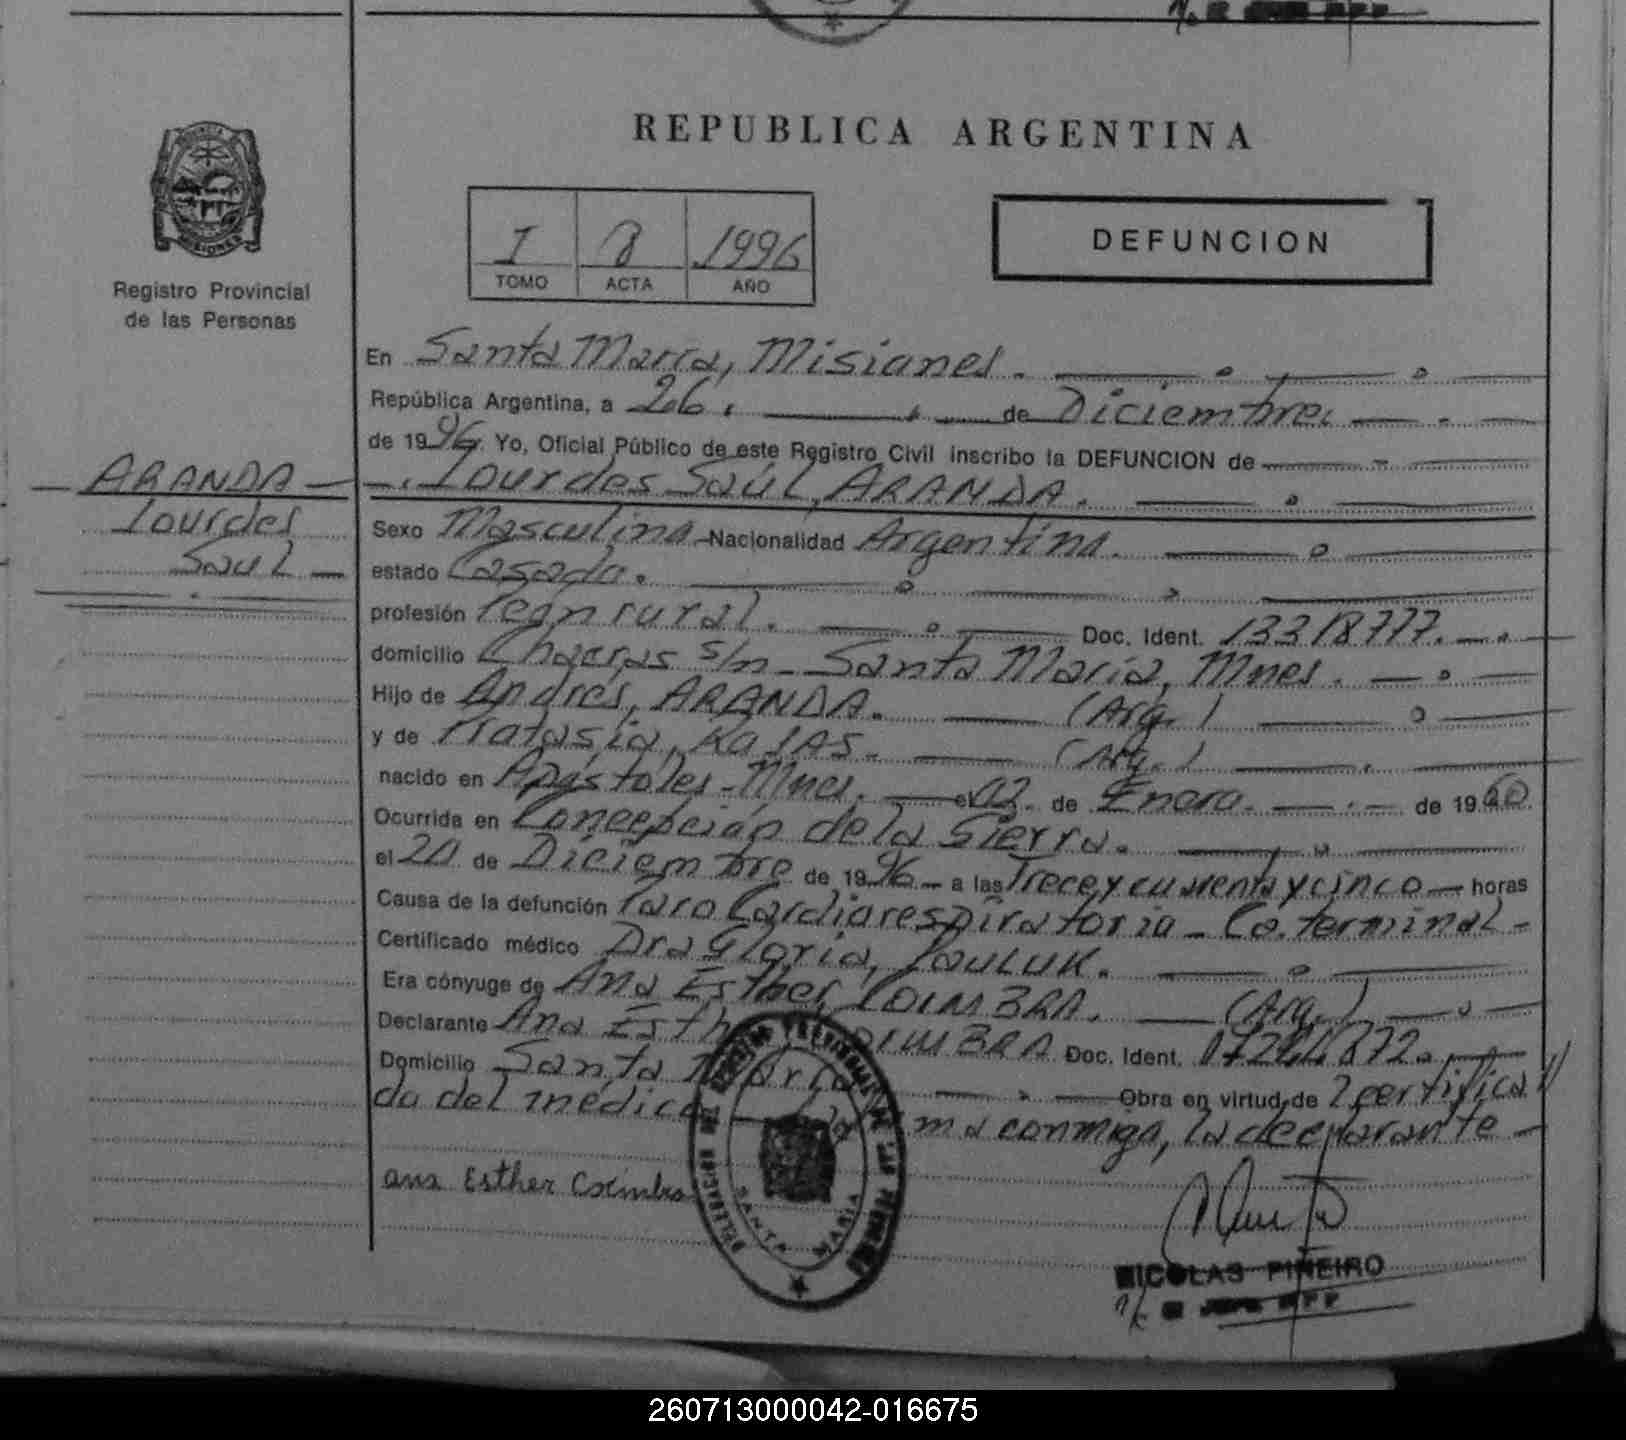 REPUBLICA ARGENTINA
MISIONES
Registro Provincial
de las Personas
I 8 1996
TOMO ACTA AÑO
DEFUNCION
En Santa María, Misiones.
República Argentina, a 26. de Diciembre.
de 1996 Yo, Oficial Público de este Registro Civil inscribo la DEFUNCION de
Lourdes Saúl, ARANDA.
ARANDA
Lourdes
Saul
Sexo Masculino Nacionalidad Argentina.
estado Casado.
profesión Peón rural. Doc. Ident. 13318777.
domicilio Chacras s/n - Santa María, Mnes.
Hijo de Andrés, ARANDA. (Arg.)
y de (Arg.)
nacido en Apóstoles - Mnes. el 02 de Enero. de 1960
Ocurrida en Concepción de la Sierra.
el 20 de Diciembre de 1996 - a las Trece y cuarenta y cinco horas
Causa de la defunción Paro Cardiorespiratorio - Ca. terminal -
Certificado médico Dra Gloria, PAULUK.
Era cónyuge de Ana Esther, COIMBRA. (Arg.)
Declarante Ana Esth OIMBRA Doc. Ident.
Domicilio Santa María Obra en virtud de certifica//
do del médico ma conmigo, la declarante
ana Esther Coimbra
SANTA MARIA
NICOLAS PIÑEIRO
260713000042-016675